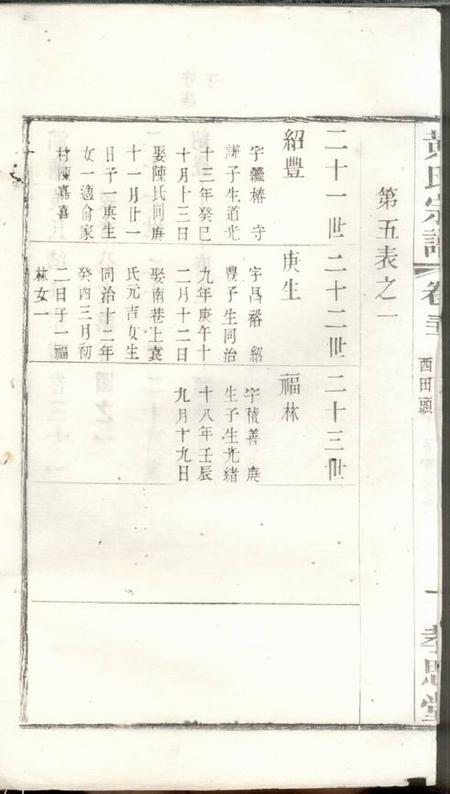 黃氏宗譜
卷三
西田頭
一
孝思堂
第五表之一
二十一世
二十二世
二十三世
紹豐
字繼椿 守
謙子生道光
十三年癸巳
十月十三日
娶陳氏同庚
十一月廿一
日子一庚生
女一適俞家
村陳嘉喜
庚生
字昌裕 紹
豐子生同治
九年庚午十
二月十二日
娶南巷上袁
氏元吉女生
同治十二年
癸酉三月初
二日子一福
林女一
福林
字積善 庚
生子生光緒
十八年壬辰
九月十九日